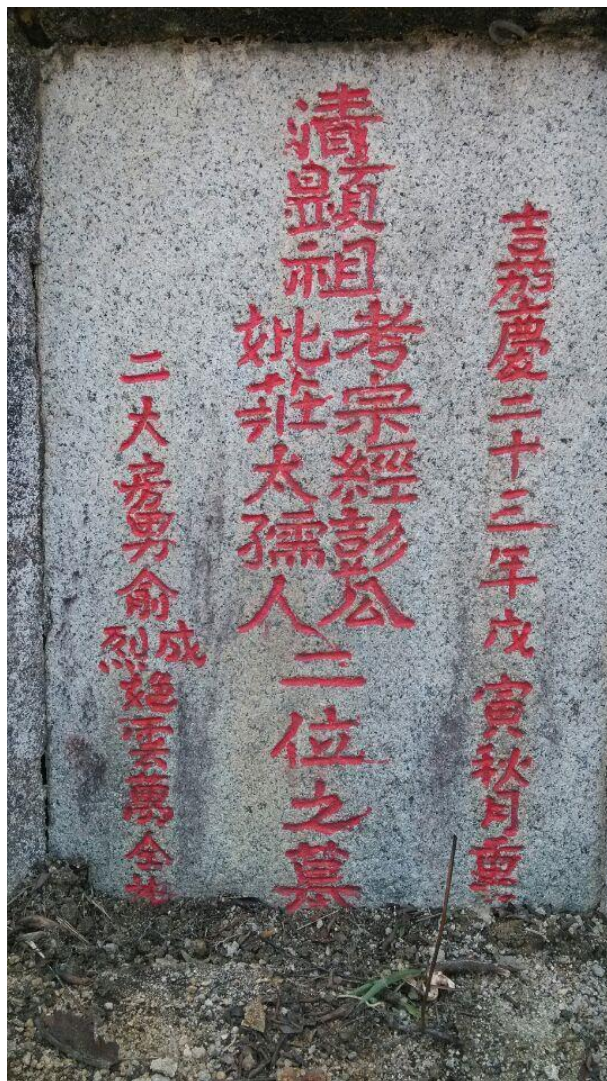 嘉慶二十三年戊寅秋月重
清顯祖
考宗經彭公
妣莊太孺人
二位之墓
二大房男俞
成
烈
雲萬仝